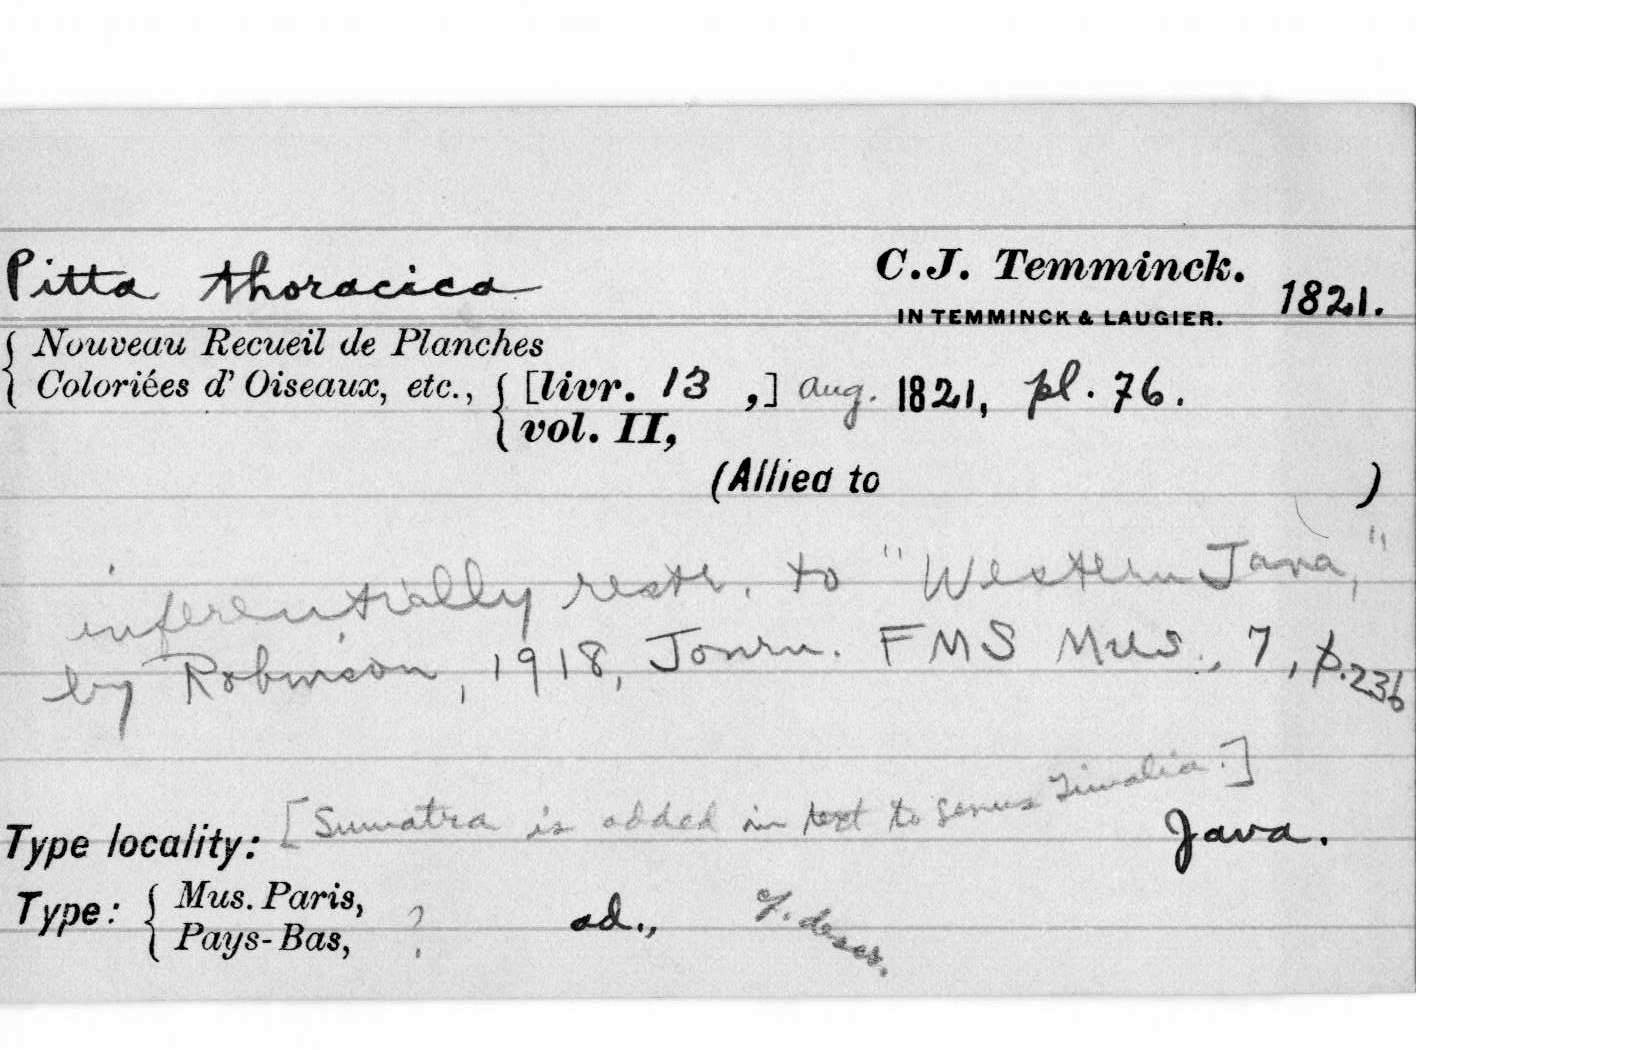 Pitta thoracica
C.J. Temminck.
IN TEMMINCK & LAUGIER.
1821.
Nouveau Recueil de Planches
Coloriées d' Oiseaux, etc., [livr. 13 ,] Aug. 1821, pl. 76.
vol. II,
(Allied to )
inferentially restr. to "Western Java,"
by Robinson, 1918, Journ. FMS Mus., 7, p. 236
[Sumatra is added in text to genus Timalia.]
Type locality: Java.
Type: Mus. Paris, ? ad.,
Pays-Bas, descr.